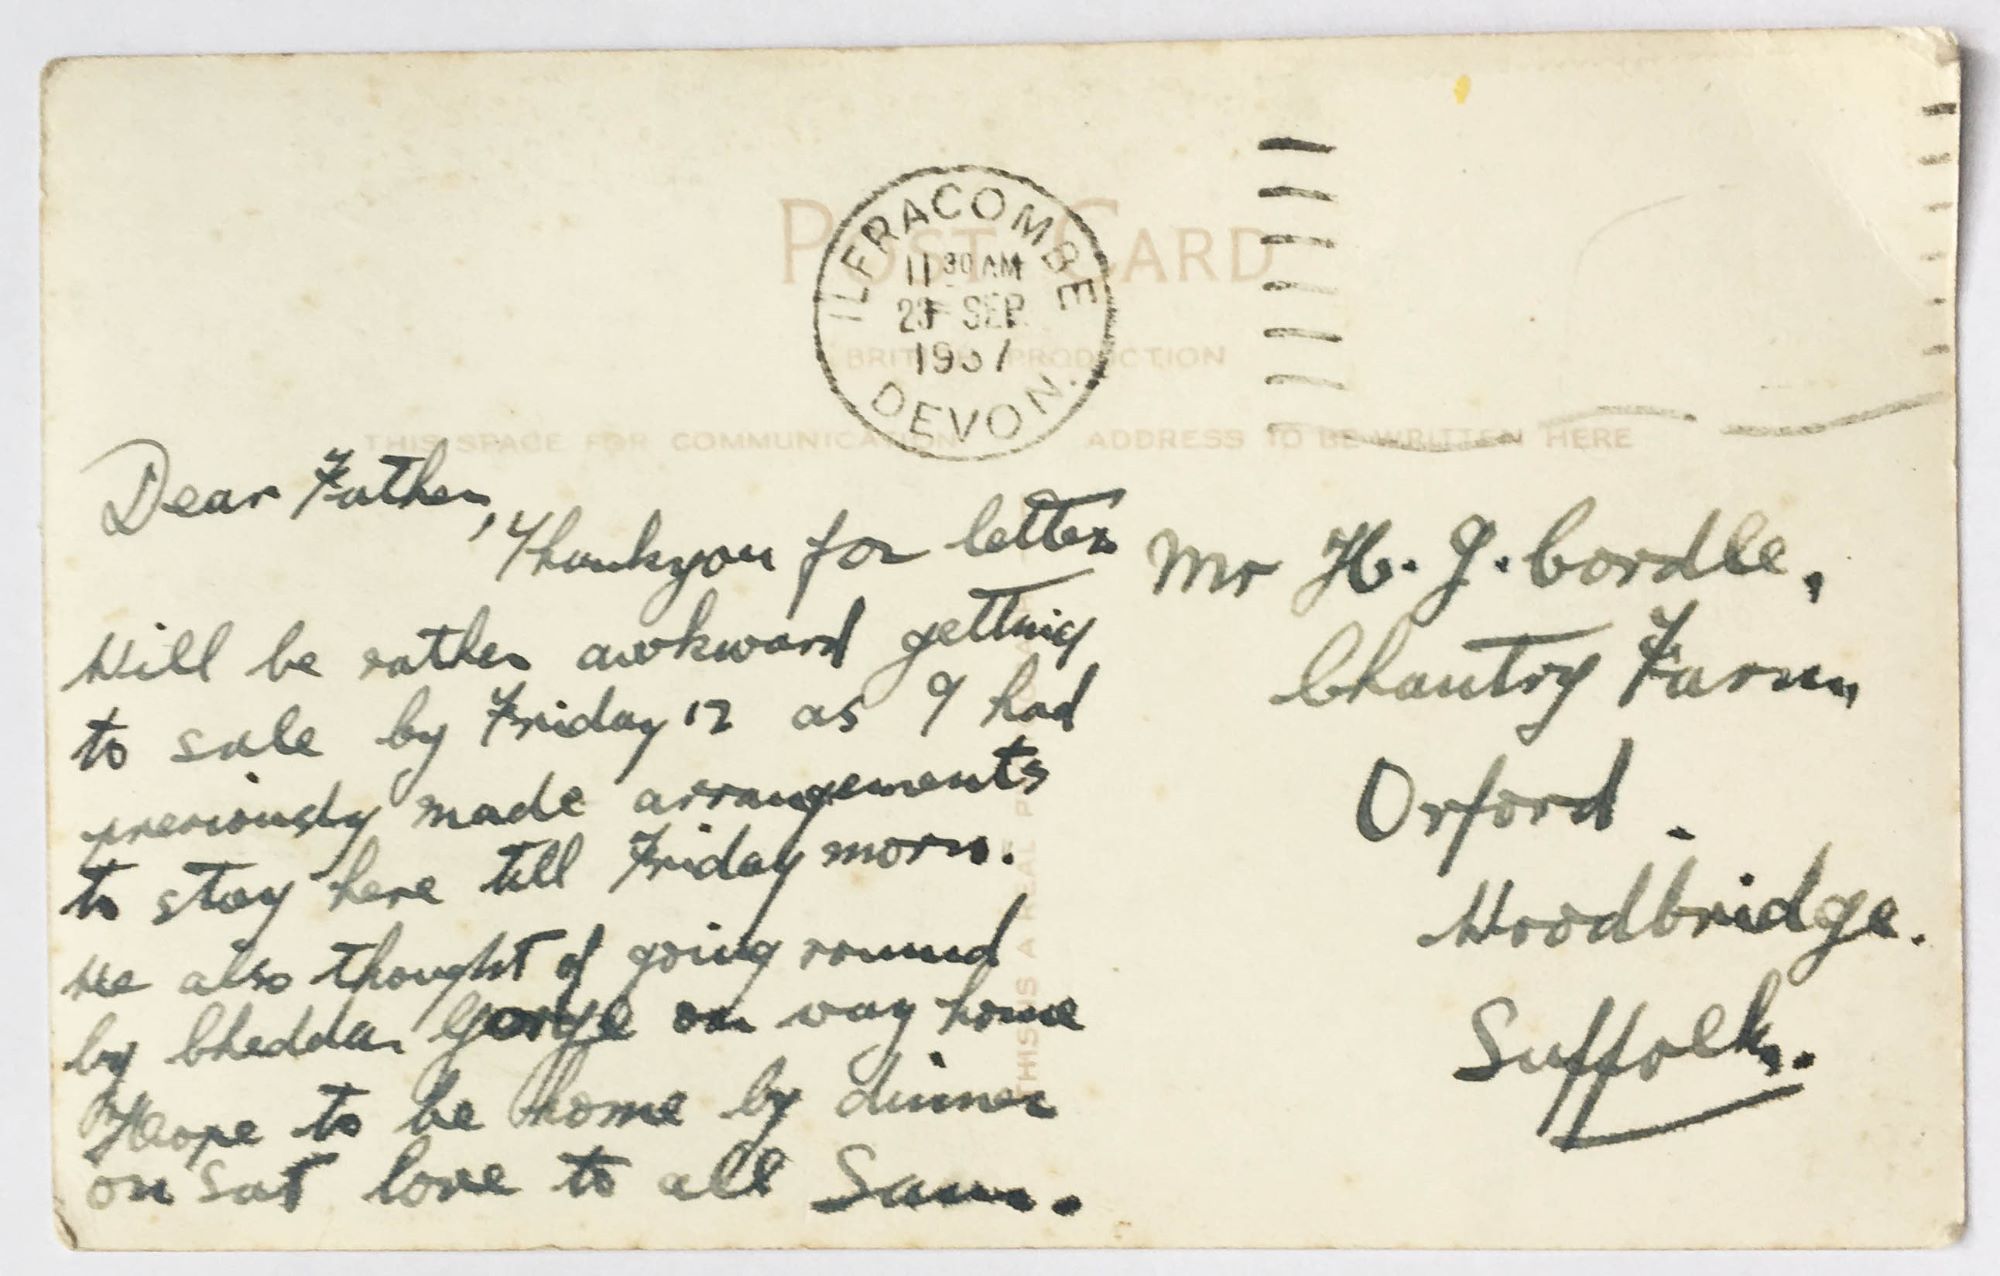 POST CARD
ILFRACOMBE
11 30 AM
SEP
1937
DEVON.
BRITISH PRODUCTION
THIS SPACE FOR COMMUNICATION
ADDRESS TO BE WRITTEN HERE
Dear Father,
Thankyou for letter
Will be rather awkward getting
to sale by Friday 12 as I had
previously made arrangements
to stay here till Friday morn.
We also thought of going round
by Cheddar Gorge on way home
Hope to be home by dinner
on Sat love to all Sam.
Mr H. J. Cordle,
Chantry Farm,
Orford.
Woodbridge.
Suffolk.
THIS IS A REAL P